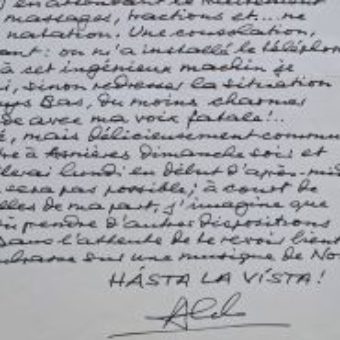 en attendant le traitement
massages, tractions et... ne
natation. Une consolation,
ant : on m'a installé le téléphon
à cet ingénieux machin je
i, sinon redresser la situation
ys Bas, du moins charmer
de avec ma voix fatale !..
é, mais délicieusement commu
à Asnières dimanche soir et
lerai lundi en début d'après-mid
sera pas possible ; à court de
lles de ma part, j'imagine que
prendre d'autres dispositions
Dans l'attente de te revoir bient
brasse sur une musique de No
HÁSTA LA VÍSTA !